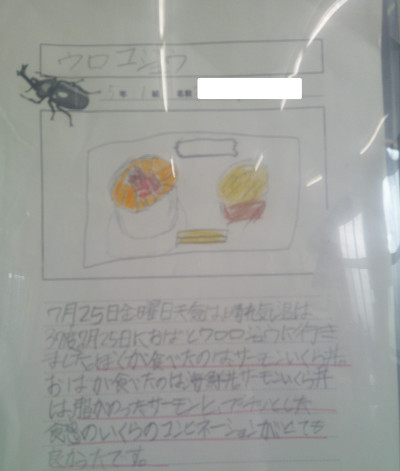 ウロコジュウ
5年 1組 名前
7月25日金曜日天気は晴れ気温は
7月25日におばとウロコジュウに行き
ました。ぼくが食べたのはサーモンいくら丼。
おばが食べたのは、海鮮丼サーモンいくら丼
は、脂ののったサーモンと、プチッとした
食感のいくらのコンビネーションがとても
良かったです。